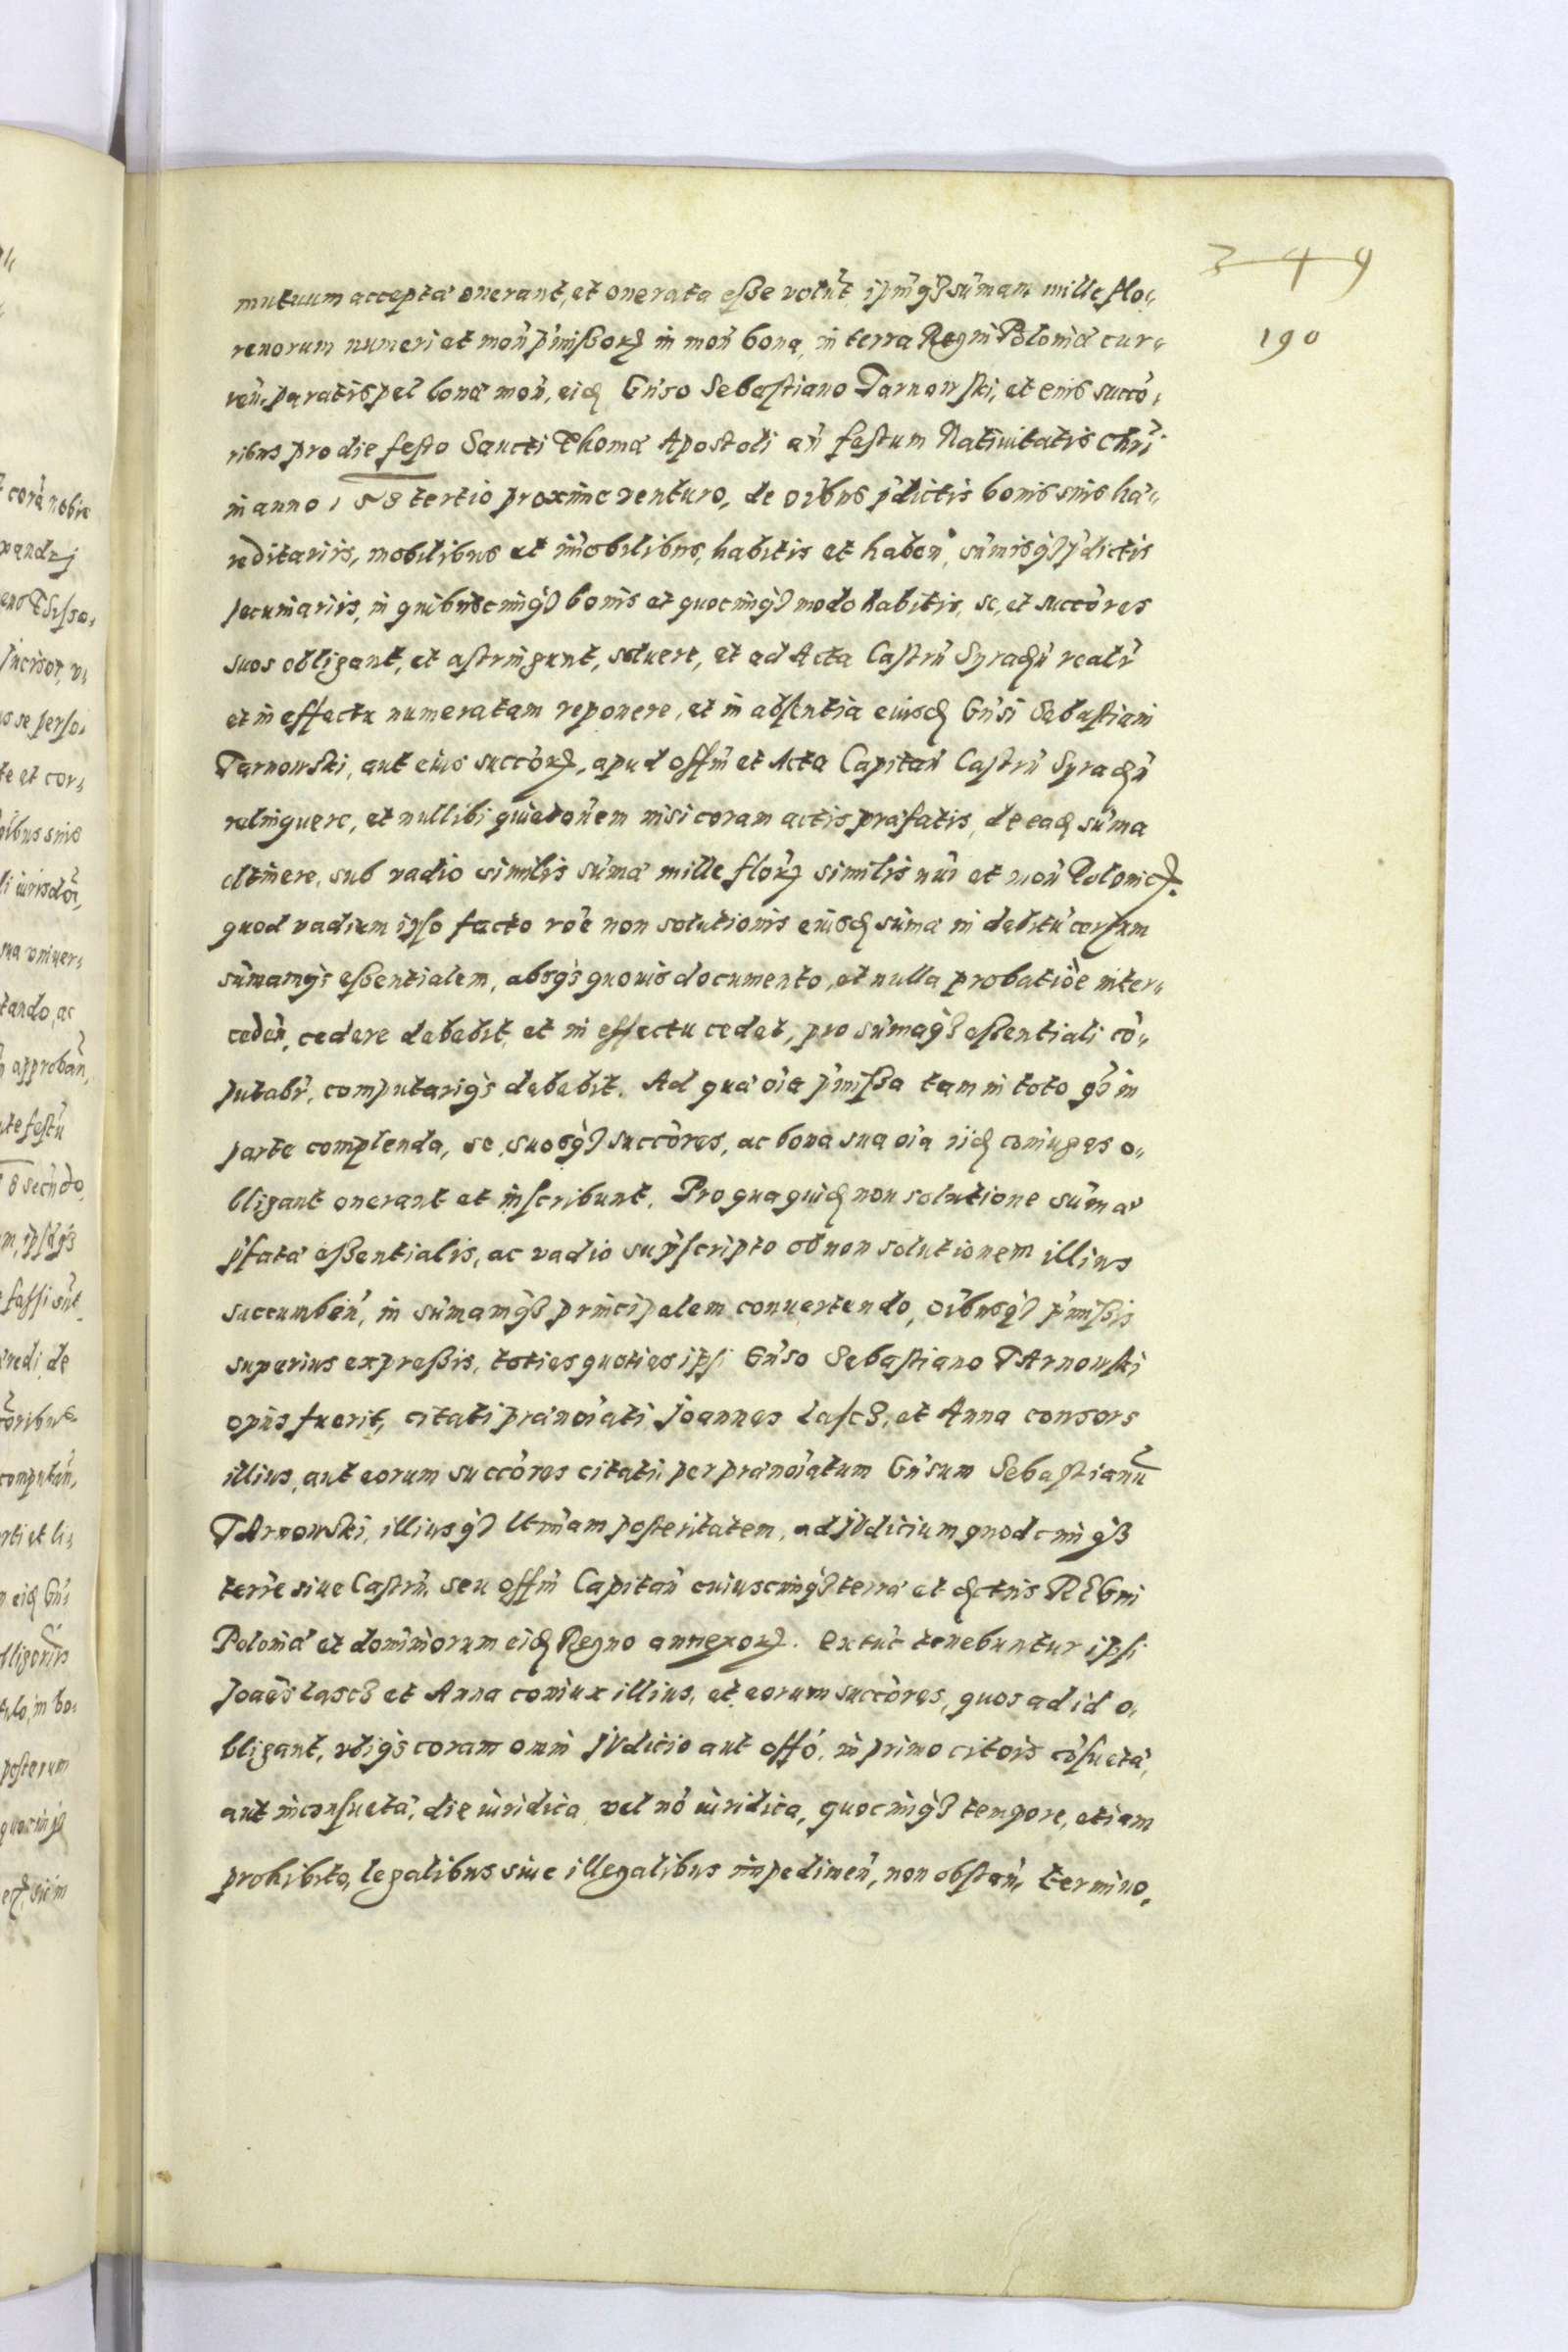 349
190
mutuum acceptæ onerant, et onerata eße volūt, ipāmq₃ sūmam mille flo„
renorum numeri et mon̄ p̄mißorꝝ in mon̄ bona, in terra Regni Poloniæ cur„
ren̄, paratis pec̄ bonæ mon̄, eid. Gn̄so Sebastiano Tarnowski, et eius succō„
ribus pro die festo Sancti Thomæ Apostoli an̄ festum Natiuitatis Chrī
in anno 158 tertio proxime venturo, de oībus p̄dictis bonis suis hæ„
reditariis, mobilibus et īmobilibus, habitis et haben̄, sūmisq₃ p̄dictis
pecuniariis, in quibuscūnq₃ bonis et quocūnq₃ modo habitis, se, et succōres
suos obligant, et astringunt, soluere, et ad Acta Castrn̄ Syradn̄ realr̄
et in effectu numeratam reponere, et in absentia eiusd. Gn̄si Sebastiani
Tarnowski, aut eius succōrꝝ, apud offm̄ et Acta Capitan̄ Castrn̄ Syradn̄
relinquere, et nullibi quietōnem nisi coram actis præfatis, de ead. sūma
obtinere, sub vadio similis sūmæ mille florꝝ similis nūi et mon̄ Polonicꝝ.
quod vadium ipso facto rōe non solutionis eiusd. sūmæ in debitū certum
sūmamq₃ eßentialem, absq₃ quouis documento, et nulla probatiōe inter„
ceden̄, cedere debebit, et in effectu cedet, pro sūmaq₃ eßentiali cō„
putabr̄, computariq₃ debebit. Ad quæ oīa p̄mißa tam in toto q₃ in
parte complenda, se, suosq₃ succōres, ac bona sua oīa iid. coniuges o„
bligant onerant et inscribunt. Pro qua quid. non solutione sūmæ
p̄fatæ eßentialis, ac vadio sup̄scripto ob non solutionem illius
succumben̄, in sūmamq₃ principalem conuertendo, oībusq₃ p̄mißis
superius expreßis, toties quoties ipsi Gn̄so Sebastiano TArnowski
opus fuerit, citati prænoīati Joannes Lasc8, et Anna consors
illius, aut eorum succōres citati, per prænoīatum Gn̄sum Sebastianū
TArnowski, illiusq₃ ltīmam posteritatem, ad JVdicium quodcūnq₃
terre siue Castrn̄, seu offm̄ Capitan̄ cuiuscūnq₃ terræ et dctris REGni
Poloniæ et dominiorum eid. Regno annexorꝝ. Extūc tenebuntur ipsi
Joaēs Lasc8 et Anna coniux illius, et eorum succōres, quos ad id o„
bligant, vbiq₃ coram omni JVdicio aut offō, in primo citōis cōsuetæ,
aut inconsuetæ, die iuridica, vel nō iuridica, quocūnq₃ tempore, etiam
prohibito, legalibus siue illegalibus impedimen̄, non obstan̄, termino,